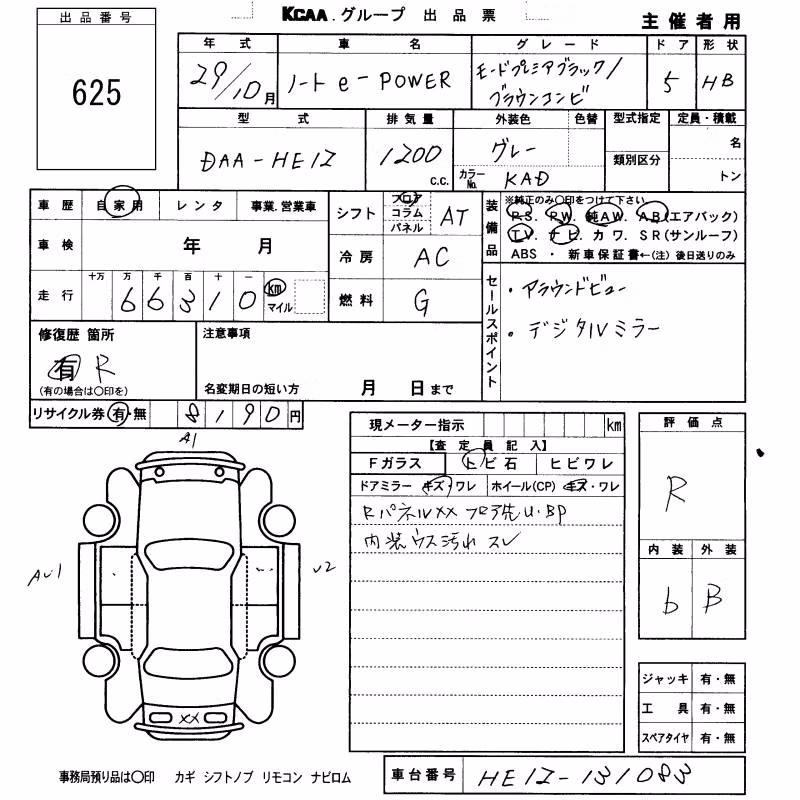 出品番号
625
KCAA.グループ 出品票
主催者用
年式 車名 グレード ドア 形状
29/10月 ノート e-POWER モードプレミアブラック/ブラウンコンビ 5 HB
型式 排気量 外装色 色替 型式指定 定員・積載
DAA-HE12 1200 c.c. グレー 類別区分 名
カラーNo. KAD トン
車歴 自家用 レンタ 事業.営業車
車検 年 月
走行 十万 万 千 百 十 一
66310 km マイル
シフト フロア コラム パネル AT
冷房 AC
燃料 G
装備品
※純正のみ〇印をつけて下さい
P.S. P.W. 純AW. A.B(エアバック)
T.V. ナビ. カワ. SR(サンルーフ)
ABS ・ 新車保証書←(注) 後日送りのみ
セールスポイント
・アラウンドビュー
・デジタルミラー
修復歴 箇所
有 R
(有の場合は〇印を)
注意事項
名変期日の短い方 月 日まで
リサイクル券 有・無 8190円
A1
AU1
U2
XX
現メーター指示 km
【査定員記入】
Fガラス トビ石 ヒビワレ
ドアミラー キズ・ワレ ホイール(CP) キズ・ワレ
RパネルXX フロア先U・BP
内装ウス汚れ スレ
評価点
R
内装 外装
b B
ジャッキ 有・無
工具 有・無
スペアタイヤ 有・無
事務局預り品は〇印 カギ シフトノブ リモコン ナビロム
車台番号 HE12-131083